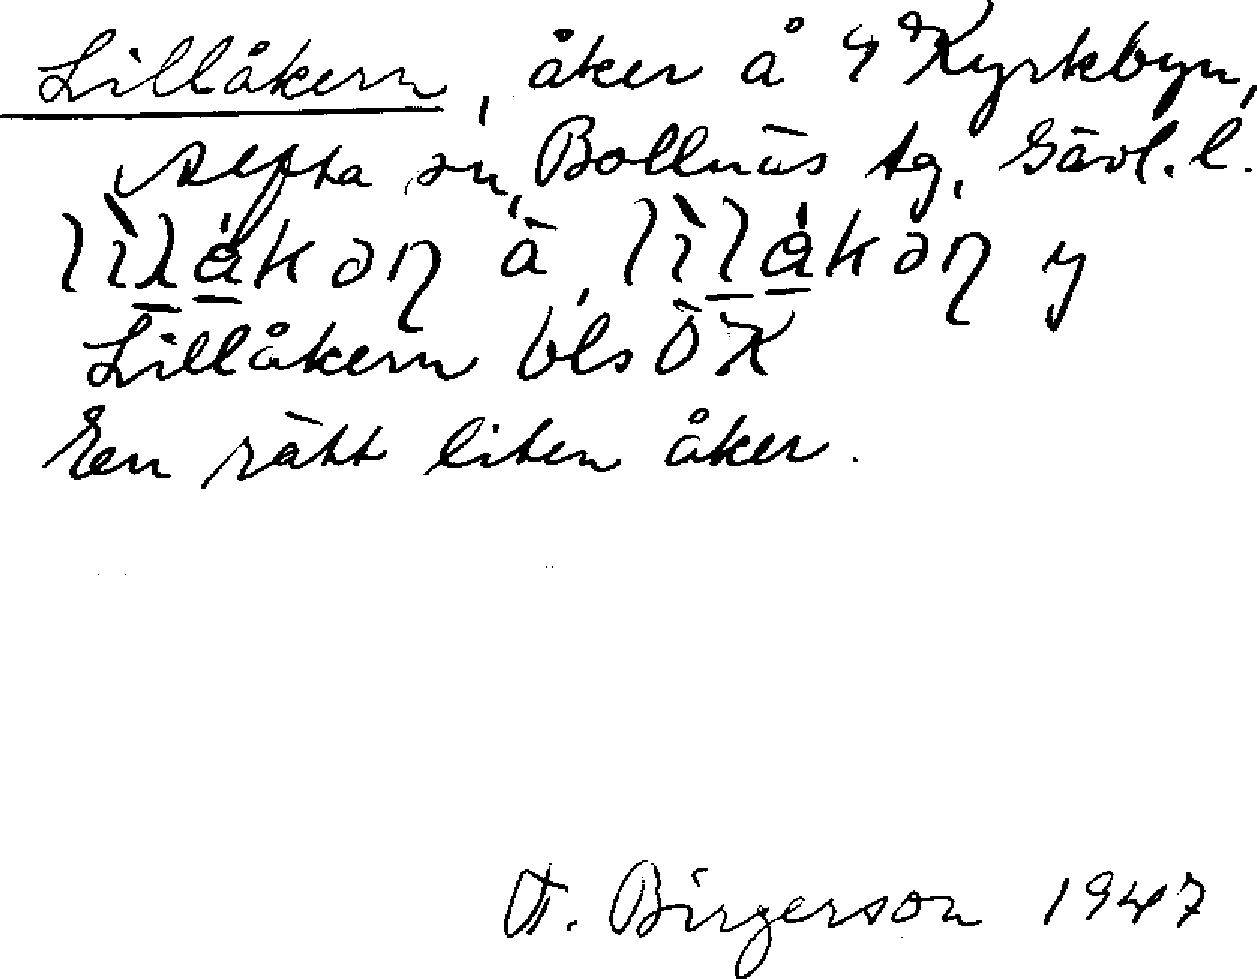 Lillåkern, åker å 4 Kyrkbyn,
Alfta sn, Bollnäs tg, Gävl. l.
lìlákəη ä, lìlákəη y
Lillåkern bls ÖK
En rätt liten åker.
A. Birgerson 1947